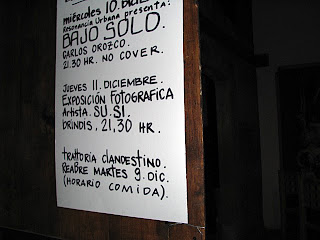 miércoles 10. Dicie
Resonancia Urbana presenta:
BAJO SOLO.
CARLOS OROZCO.
21.30 HR. NO COVER.
JUEVES 11. DICIEMBRE.
EXPOSICIÓN FOTOGRAFICA
Artista. SU.SI.
BRINDIS, 21,30 HR.
trattoria CLANDESTINO.
REABRE MARTES 9. DIC.
(HORARIO COMIDA).